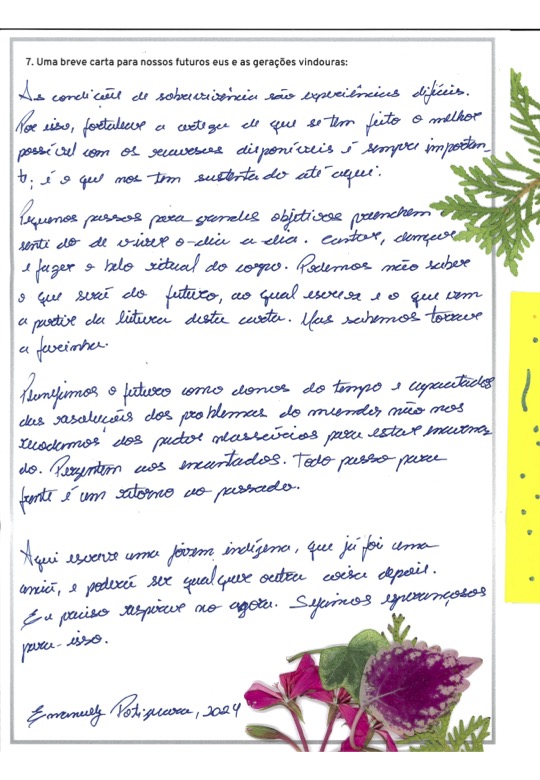 7. Uma breve carta para nossos futuros eus e as gerações vindouras:
As condições de sobrevivência são experiências difíceis.
Por isso, fortalecer a certeza de que se tem feito o melhor
possível com os recursos disponíveis é sempre importan-
te; é o que nos tem sustentado até aqui.
Pequenos passos para grandes objetivos preenchem o
sentido de viver o dia a dia. Cantar, dançar
e fazer o belo ritual do corpo. Podemos não saber
o que será do futuro, ao qual escrevo e o que vem
a partir da leitura desta carta. Mas sabemos torrar
a farinha.
Planejamos o futuro como donos do tempo e capacitados
das resoluções dos problemas do mundo não nos
recordamos dos pactos necessários para estar encarna
do. Perguntem aos encantados. Todo passo para
frente é um retorno ao passado.
Aqui escreve uma jovem indígena, que já foi uma
anciã, e poderá ser qualquer outra coisa depois.
Eu preciso respirar no agora. Sejamos esperançosos
para isso.
Emanuely Potiguara, 2024